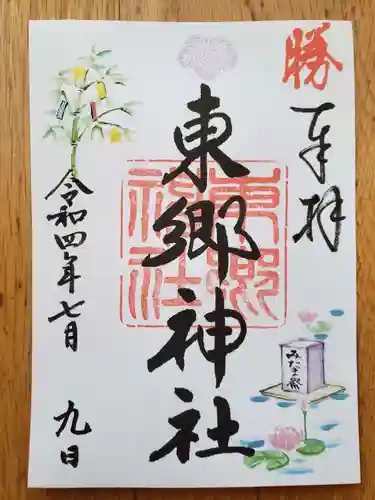 勝
奉拝
東郷神社
東郷
神社
みたま祭
令和四年七月九日